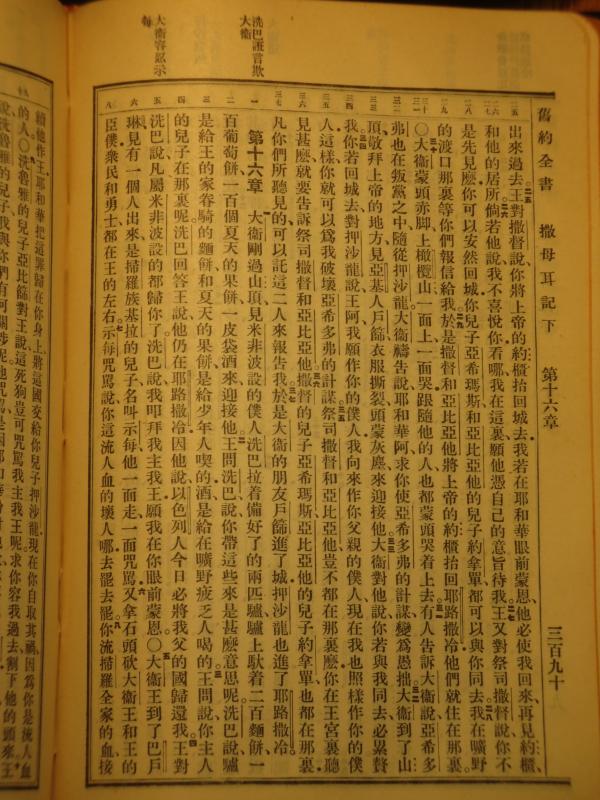 舊約全書　撒母耳記下　第十六章　三百九十
出來過去王對撒督說你將上帝的約櫃抬回城去我若在耶和華眼前蒙恩他必使我回來再見約櫃
和他的居所倘若他說我不喜悅你看哪我在這裏願他憑自己的意旨待我王又對祭司撒督說你不
是先見麼你可以安然回城你兒子亞希瑪斯和亞比亞他的兒子約拿單都可以與你同去我在曠野
的渡口那裏等你們報信給我於是撒督和亞比亞他將上帝的約櫃抬回耶路撒冷他們就住在那裏
○大衛蒙頭赤脚上橄欖山一面上一面哭跟隨他的人也都蒙頭哭着上去有人告訴大衛說亞希多
弗也在叛黨之中隨從押沙龍大衛禱告說耶和華阿求你使亞希多弗的計謀變爲愚拙大衛到了山
頂敬拜上帝的地方見亞基人戶篩衣服撕裂頭蒙灰塵來迎接他大衛對他說你若與我同去必累贅
我你若回城去對押沙龍說王阿我願作你的僕人我向來作你父親的僕人現在我也照樣作你的僕
人這樣你就可以爲我破壞亞希多弗的計謀祭司撒督和亞比亞他豈不都在那裏麼你在王宮裏聽
見甚麼就要告訴祭司撒督和亞比亞他撒督的兒子亞希瑪斯亞比亞他的兒子約拿單也都在那裏
凡你們所聽見的可以託這二人來報告我於是大衛的朋友戶篩進了城押沙龍也進了耶路撒冷
洗巴誑言欺大衛
第十六章　大衛剛過山頂見米非波設的僕人洗巴拉着備好了的兩匹驢驢上馱着二百麵餅一
百葡萄餅一百個夏天的果餅一皮袋酒來迎接他王問洗巴說你帶這些來是甚麼意思呢洗巴說驢
是給王的家眷騎的麵餅和夏天的果餅是給少年人喫的酒是給在曠野疲乏人喝的王問說你主人
的兒子在那裏呢洗巴回答王說他仍在耶路撒冷因他說以色列人今日必將我父的國歸還我王對
洗巴說凡屬米非波設的都歸你了洗巴說我叩拜我主我王願我在你眼前蒙恩○大衛王到了巴戶
大衛容忍示每
琳見有一個人出來是掃羅族基拉的兒子名叫示每他一面走一面咒罵又拿石頭砍大衛王和王的
臣僕衆民和勇士都在王的左右示每咒罵說你這流人血的壞人哪去罷去罷你流掃羅全家的血接
續他作王耶和華把這罪歸在你身上將這國交給你兒子押沙龍現在你自取其禍因爲你是流人血
的人○洗魯雅的兒子亞比篩對王說這死狗豈可咒罵我主我王呢求你容我過去割下他的頭來王